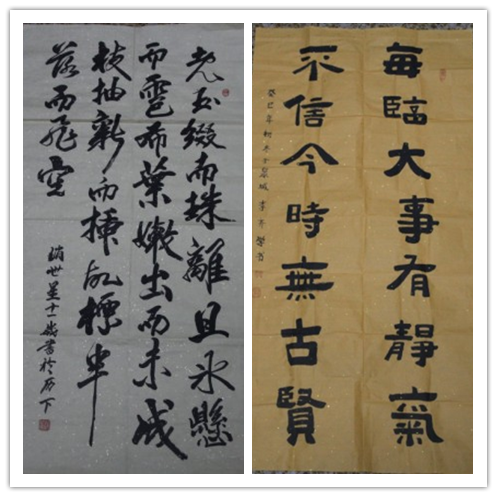 既玉綴而珠離且冰懸
而雹布葉嫩出而未成
枝抽新而插故標半
落而飛空
世星十一歲書於下
每臨大事有靜氣
不信今時無古賢
癸巳年初冬于城李書